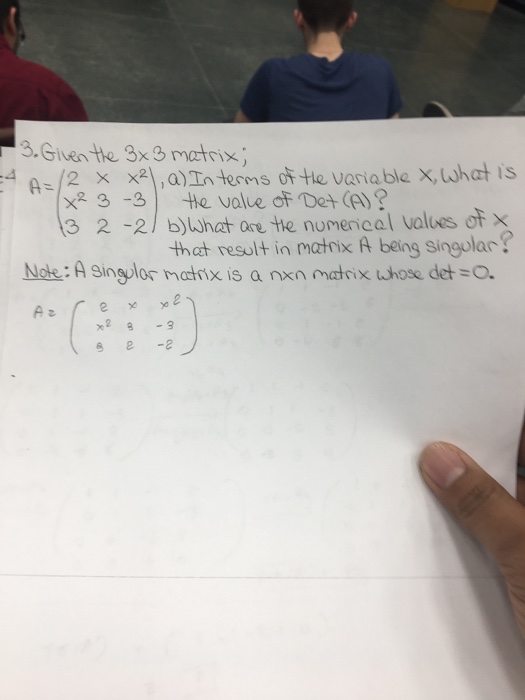 3. Given the 3x3 matrix;
A = (2 x x²), a) In terms of the variable x, what is
x² 3 -3 the value of Det (A)?
3 2 -2) b) What are the numerical values of x
that result in matrix A being singular?
Note: A singular matrix is a nxn matrix whose det = 0.
A = ( 2 x x²
x² 3 -3
3 2 -2 )